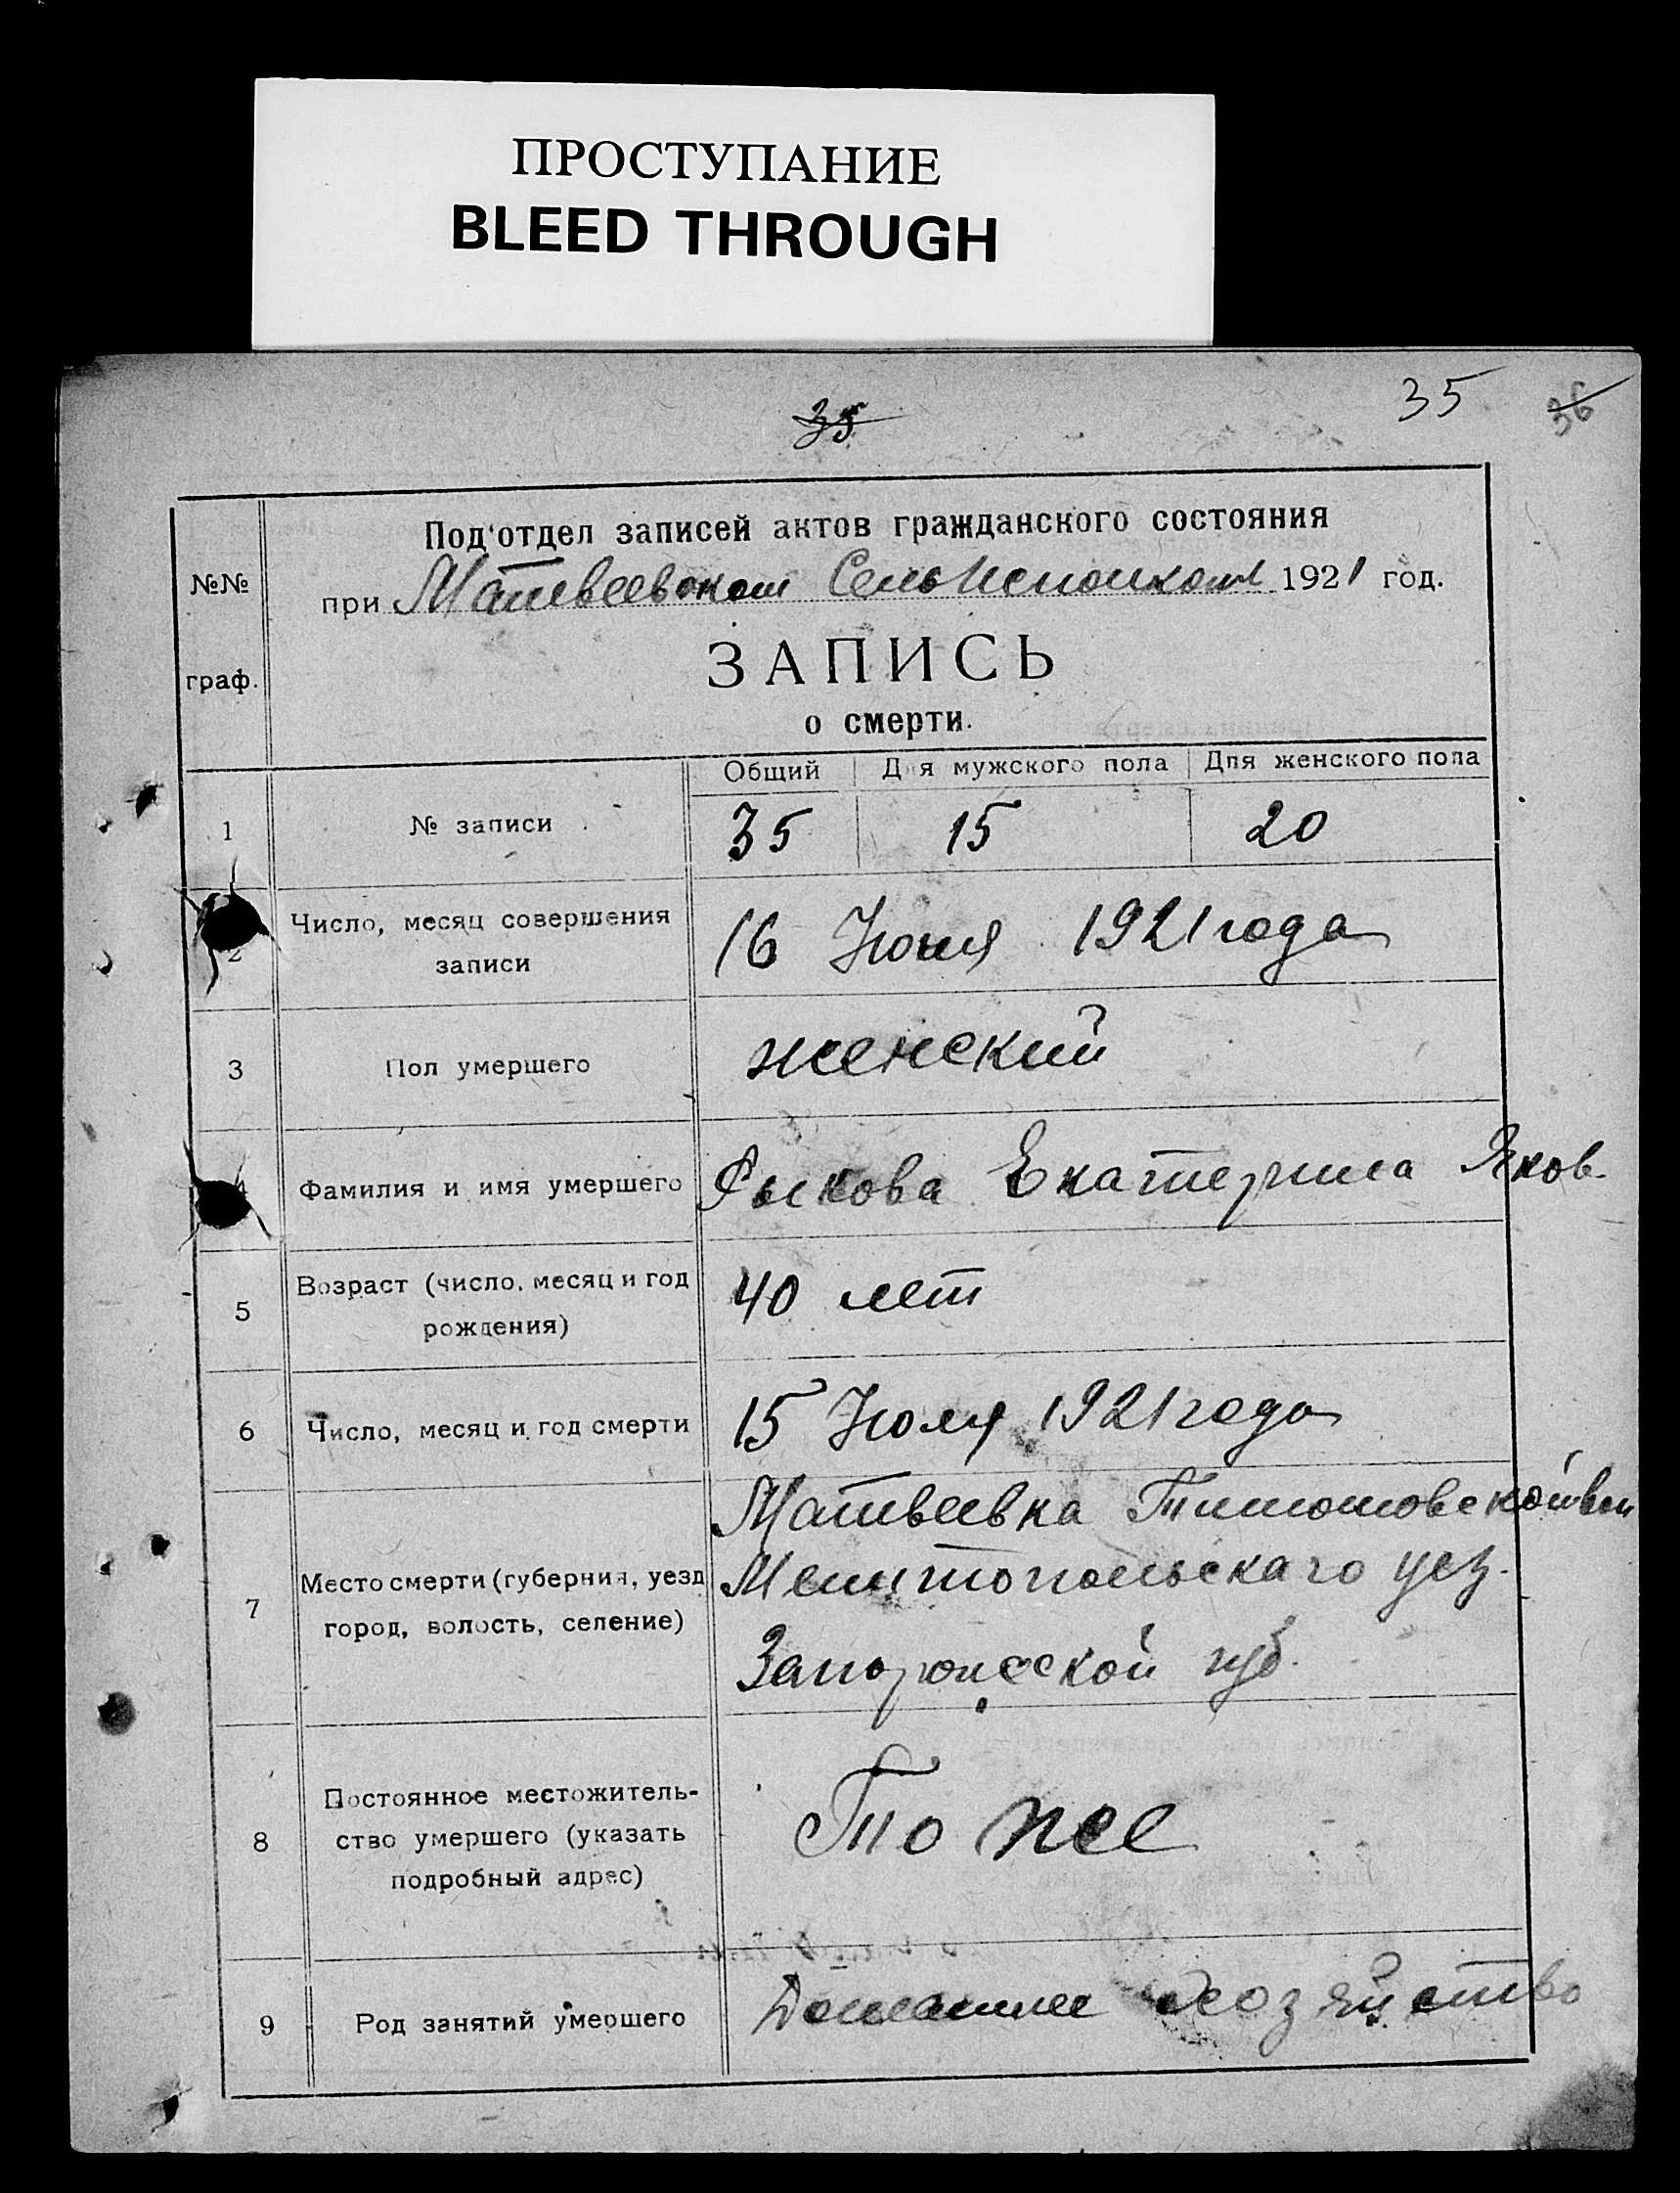 ПРОСТУПАНИЕ
BLEED THROUGH
35 35 36
Под'отдел записей актов гражданского состояния
№№ при Матвеевском Сельисполкоме 1921 год.
граф. ЗАПИСЬ
о смерти.
Общий Для мужского пола Для женского пола
1 № записи 35 15 20
2 Число, месяц совершения
записи 16 Июня 1921 года
3 Пол умершего женский
4 Фамилия и имя умершего Рыкова Екатерина Яков.
5 Возраст (число, месяц и год
рождения) 40 лет
6 Число, месяц и год смерти 15 Июля 1921 года
7 Место смерти (губерния, уезд
город, волость, селение)
Матвеевка Тимошовской вол
Мелитопольскаго уез.
Запорожсской губ.
8 Постоянное местожитель-
ство умершего (указать
подробный адрес)
То же
9 Род занятий умершего Домашнее хозяйство